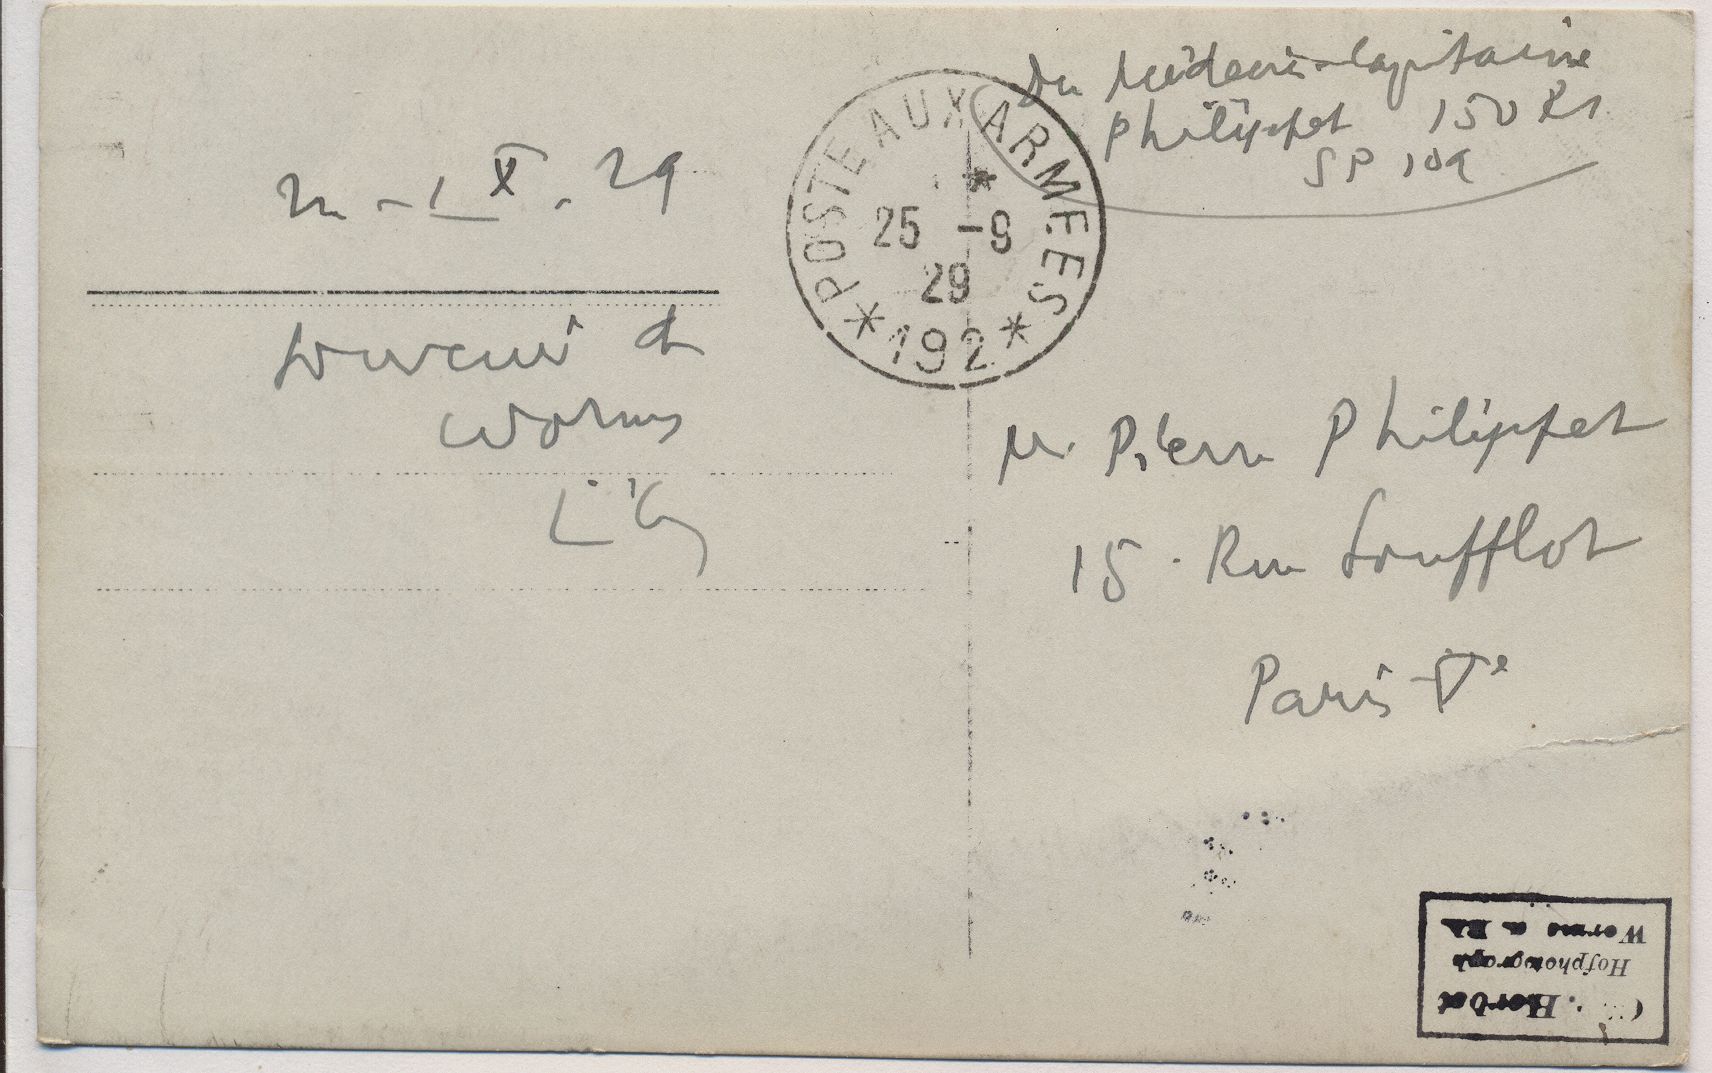 Du Médecin-Capitaine
Philippet 150 RI
SP 109
POSTE AUX ARMEES
25 -9
29
* 192 *
22 - IX - 29
Souvenir de
Worms
Lily
M. Pierre Philippet
15 . Rue Soufflot
Paris Ve
Herbst
Hofphotograph
Worms a Rh